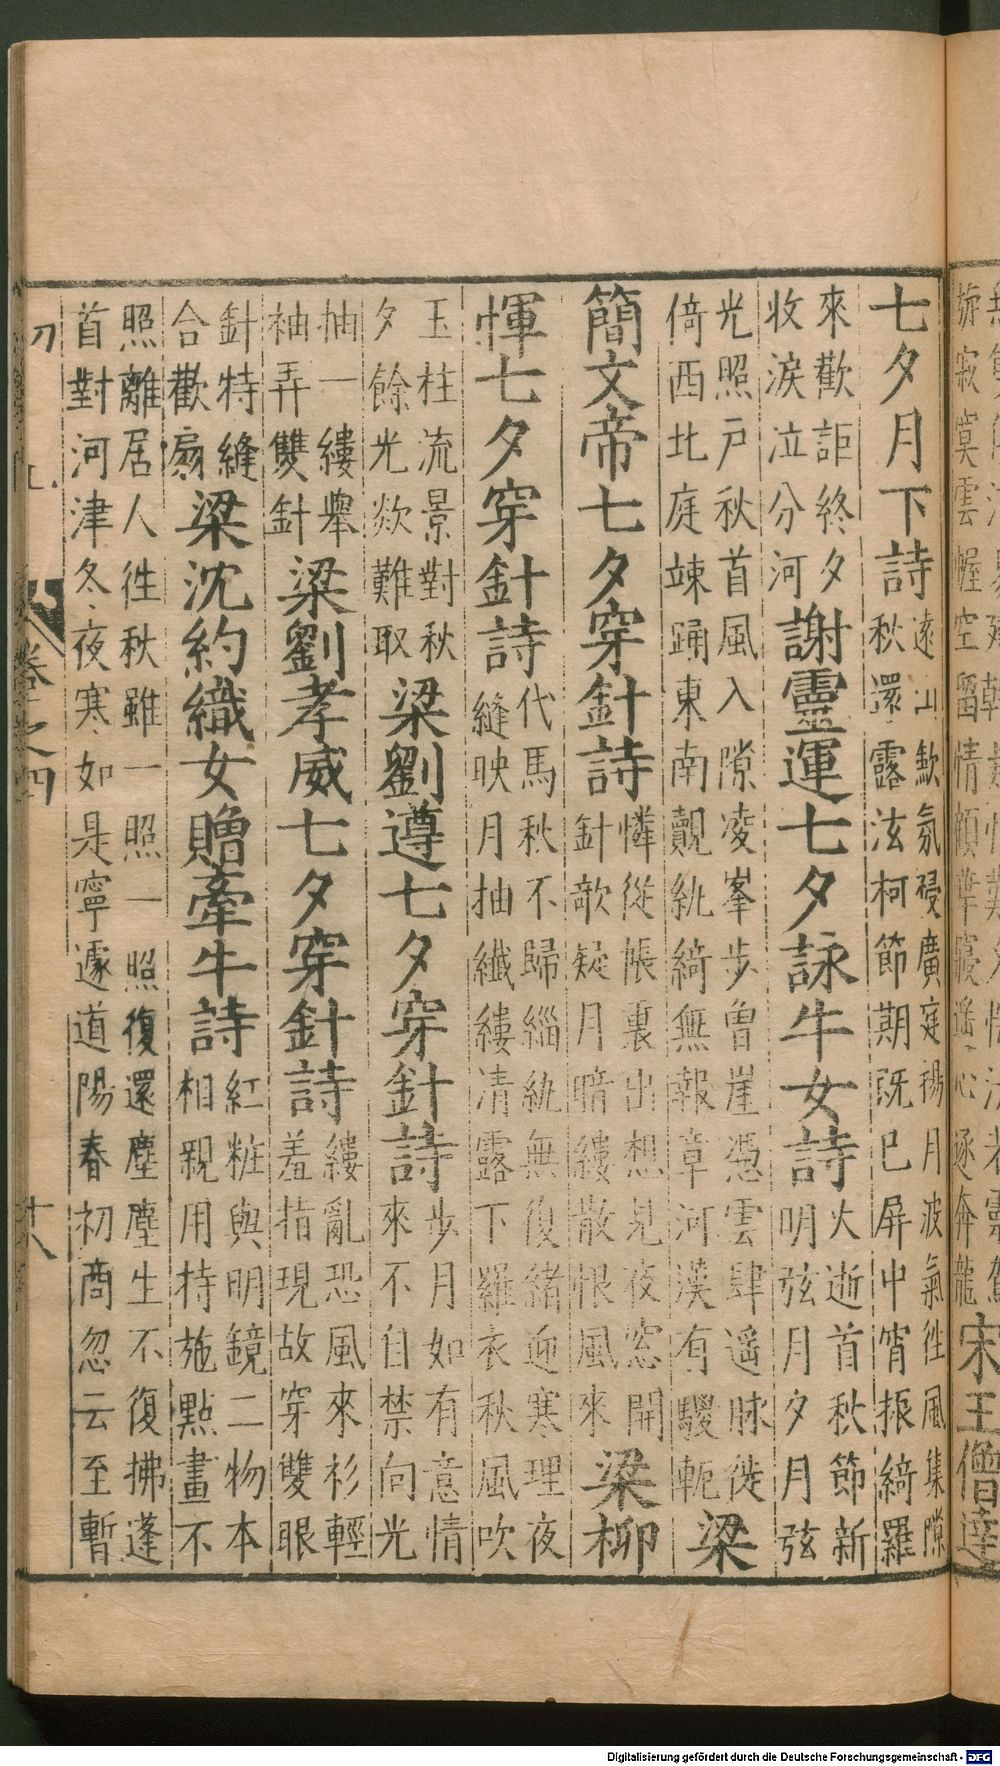 旂寂寞雲幄空留情顧華寢遥心逐奔龍
宋王僧達
七夕月下詩
遠山歛氛祲廣庭揚月波氣徃風集隙
秋還露泫柯節期旣巳屏中宵振綺羅
來歡詎終夕
收淚泣分河
謝靈運七夕詠牛女詩
火逝首秋節新
明弦月夕月弦
光照戸秋首風入隙凌峯步曾崖憑雲肆遥脉徙
倚西北庭竦踊東南覿紈綺無報章河漢有騣軛
梁
簡文帝七夕穿針詩
憐從帳裏出想見夜窓開
針欹疑月暗縷散恨風來
梁柳
惲七夕穿針詩
代馬秋不歸緇紈無復緒迎寒理夜
縫映月抽纖縷凊露下羅衣秋風吹
玉柱流景對秋
夕餘光欻難取
梁劉遵七夕穿針詩
步月如有意情
來不自禁向光
抽一縷舉
袖弄雙針
梁劉孝威七夕穿針詩
縷亂恐風來衫輕
羞指現故穿雙眼
針特縫
合歡扇
梁沈約織女贈牽牛詩
紅粧與明鏡二物本
相親用持施點畫不
照離居人徃秋雖一照一照復還塵塵生不復拂蓬
首對河津冬夜寒如是寧遽道陽春初商忽云至暫
卷之四
十八
Digitalisierung gefördert durch die Deutsche Forschungsgemeinschaft - DFG